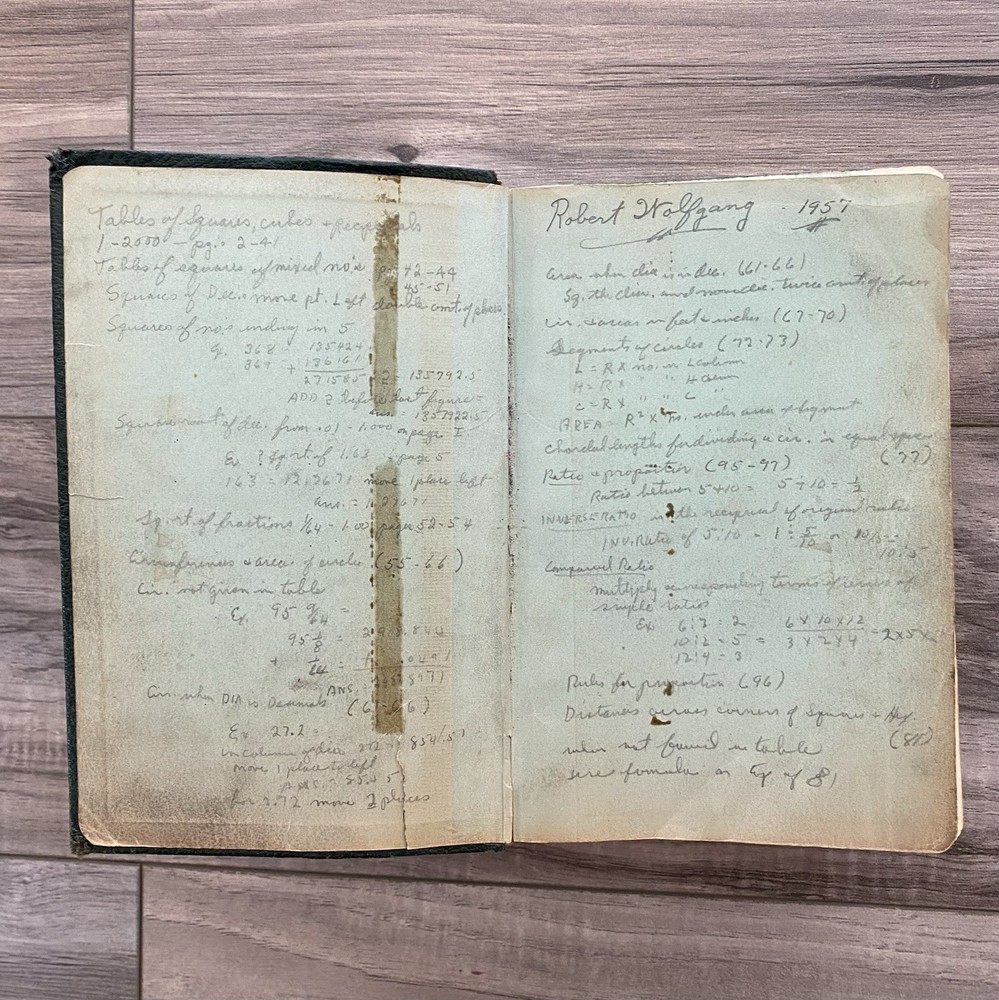 Tables of Squares, cubes + Reciprocals
1-2000 - pg. = 2-41
Tables of squares of mixed no's pg 42-44
45-51
Squares of Dec. move pt. Left double amt. of places
Squares of no,s ending in 5
Ex. 368 = 135924
369 + 136161
271585 ÷ 2 = 135792.5
ADD 2 before last figure =
ans. = 1357922.5
Square root of dec. from .01 - 1.000 on page
Ex. ? Sq. rt of 1.63 page 5
163 = 12.7671 move 1 place left
ans. = 1.27671
Sq. rt. of fractions 1/64 - 1.00 pages 52-54
Circumferences + area of circles (55-66)
Cir. not given in table
Ex. 95 9/64 =
95 1/8 =
+ 1/64 =
ANS.
Cir. when DIA is Decimals
Ex. 27.2 =
in column of dia 272
move 1 place to left
ans. =
for 2.72 move 2 places
Robert Wolfgang - 1957
Area when dia is in dec. (61-66)
Sq. the dia. and move dec. twice amt. of places
Cir. + areas in feet + inches (67-70)
Segments of circles (72-73)
L = R x no. in L column
H = R x " " H column
C = R x " " C "
AREA = R² x no. under area of segment
Chordal lengths for dividing a cir. in equal spaces
(77)
Ratio + proportion (95-97)
Ratio between 5+10 = 5÷10 = 1/2
INVERSE RATIO is the reciprocal of original ratio
INV. Ratio of 5:10 = 1 ÷ 5/10 or 10/5 =
10:5
Compound Ratio
multiply corresponding terms of series of
simple ratios
Ex 6:3 = 2 6 x 10 x 12
10:2 = 5 = 3 x 2 x 4 = 2x5x
12:4 = 3
Rules for proportion (96)
Distances across corners of Squares + Hex.
(81)
when not found in table
use formula as Ex of 81